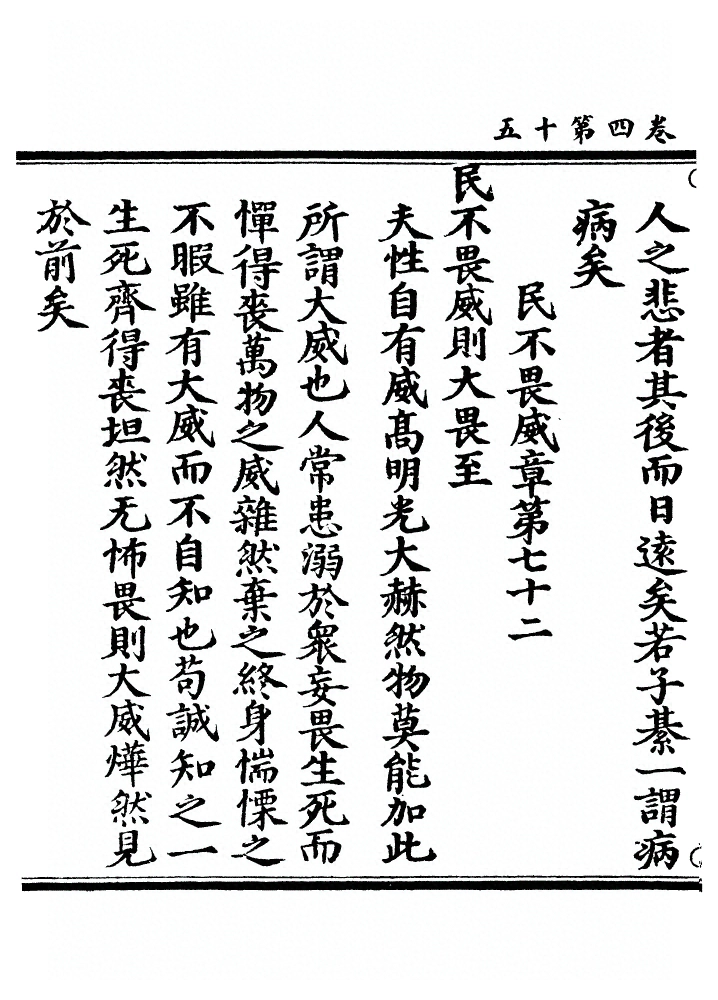 卷四第十五
人之悲者其後而日遠矣若子綦一謂病
病矣
民不畏威章第七十二
民不畏威則大畏至
夫性自有威髙明光大赫然物莫能加此
所謂大威也人常患溺於衆妄畏生死而
憚得丧萬物之威雜然棄之終身惴慄之
不暇雖有大威而不自知也苟誠知之一
生死齊得丧坦然无怖畏則大威燁然見
於前矣